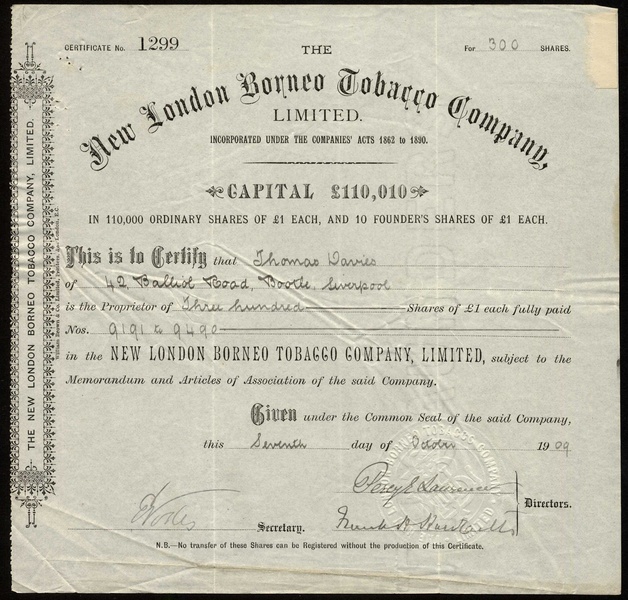 CERTIFICATE No. 1299
THE
For 300 SHARES.
New London Borneo Tobacco Company,
LIMITED.
INCORPORATED UNDER THE COMPANIES' ACTS 1862 to 1890.
CAPITAL £110,010
IN 110,000 ORDINARY SHARES OF £1 EACH, AND 10 FOUNDER'S SHARES OF £1 EACH.
This is to Certify that Thomas Davies
of 42 Balliol Road, Bootle, Liverpool
is the Proprietor of Three hundred Shares of £1 each fully paid
Nos. 9191 to 9490
in the NEW LONDON BORNEO TOBACCO COMPANY, LIMITED, subject to the
Memorandum and Articles of Association of the said Company.
Given under the Common Seal of the said Company,
this Seventh day of October 1909
Percy E Lawrence
Directors.
Secretary.
N.B.—No transfer of these Shares can be Registered without the production of this Certificate.
THE NEW LONDON BORNEO TOBACCO COMPANY, LIMITED.